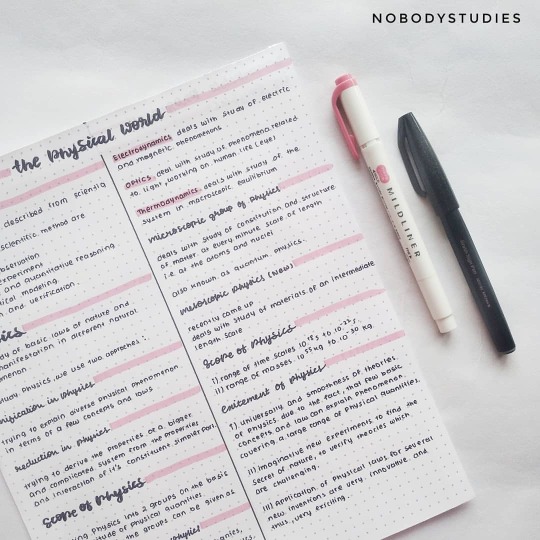 NOBODYSTUDIES
the physical world
described from scientiq
scientific method are
observation
experiment
and quantitative reasoning
modeling
and verification.
study of basic laws of nature and
manifestation in different natural
study physics, we use two approaches :
unification in physics
trying to explain diverse physical phenomenon
in terms of a few concepts and laws
Reduction in physics
trying to derive the properties of a bigger
and complicated system from the properties
and interaction of it's constituent simpler part.
Scope of physics
physics into 2 groups on the basis
of physical quantities.
the groups can be given as
Electrodynamics deals with study of electric
and magnetic phenomenons
Optics deal with study of phenomena related
to light, working on human life (eye)
Thermodynamics deals with study of the
system in macroscopic equilibrium
microscopic group of physics
deals with study of constitution and structure
of matter at every minute scale of length
i.e at the atoms and nuclei
also known as quantum physics.
mesoscopic physics (new)
recently came up
deals with study of materials of an intermediate
length scale
Scope of physics
I) range of time scales
II) range of masses
Exitement of physics
I) universality and smoothness of theories
of physics, due to the fact, that few basic
concepts and law can explain phenomena,
covering a large range of physical quantities.
II) Imaginative new experiments to find the
secret of nature, to verify theories which
are challenging.
III) Application of physical laws for several
new inventions are very innovative, and
thus, very exciting.
MILDLINER